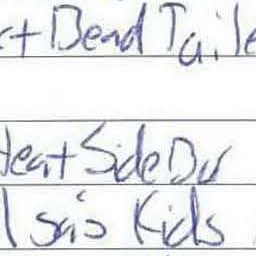 t Bend Taile
Heat Side Dr
Isa's Kids